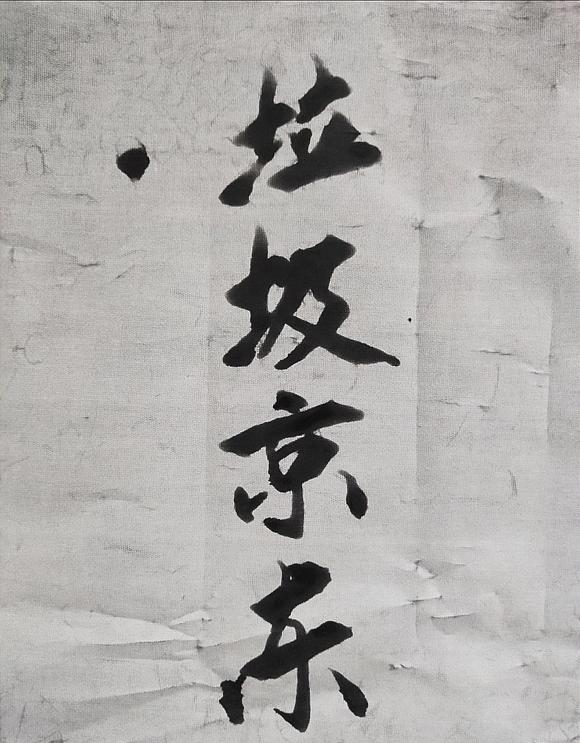 垃圾京东